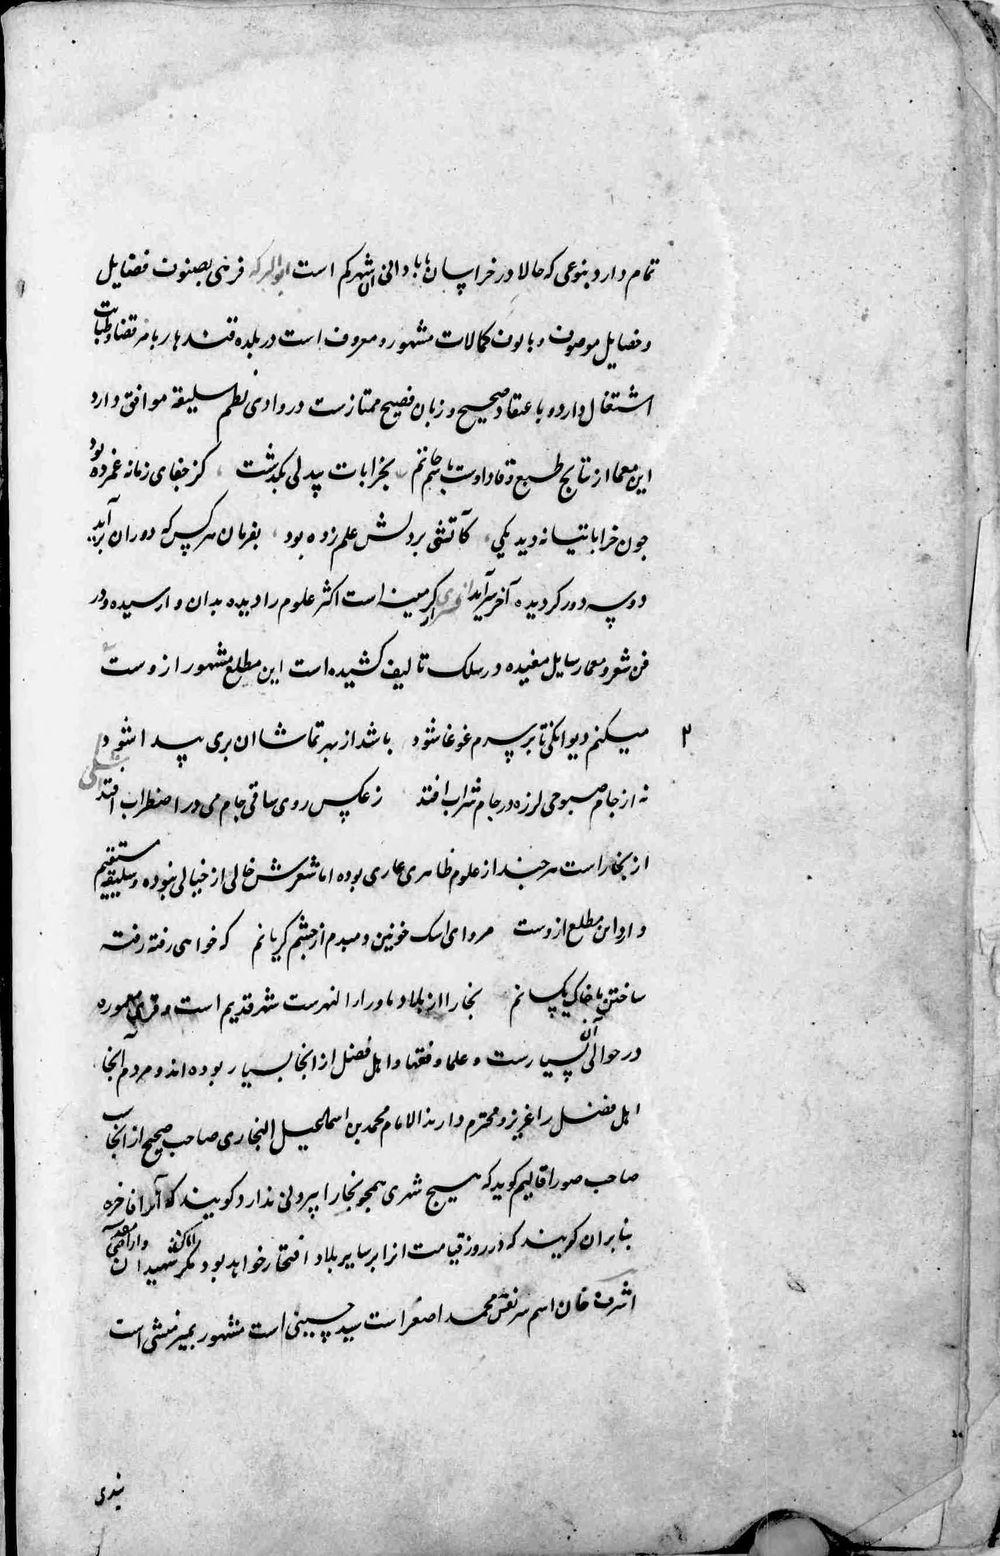 تمام دارد بنوعی که حالا در خراسان بآبادانی آن شهر کم است ابوالبرکه فرنی بصنوف فضایل
و خصایل موصوف و بالوف کمالات مشهور و معروف است در بلده قندهار بامر قضا و طبابت
اشتغال دارد و باعتقاد صحیح و زبان فصیح ممتازست در وادی نظم سلیقه موافق دارد
این معما از نتایج طبع وقاد اوست باسم حاتم بخرابات بیدلی بگذشت کز جفای زمانه غمزده بود
چون خراباتیانه دید یکی کآتشی بر دلش علم زده بود بفرمان هر کس که دوران برآید
دو سه دور گردیده آخر سرآید کرمینه است اکثر علوم را دیده بدان وارسیده و در
فن شعر و معما رسایل مفیده در سلک تالیف کشیده است این مطلع مشهور ازوست
۲ میکنم دیوانگی تا بر سرم غوغا شود باشد از بهر تماشا آن پری پیدا شود
نه از جام صبوحی لرزه در جام شراب افتد ز عکس روی ساقی جام می در اضطراب افتد
از بخار است هر چند از علوم ظاهری عاری بوده اما شعرش خالی از خیالی نبوده و سلیقه مستقیم
دارد این مطلع ازوست مرو ای اشک خونین دمبدم از چشم گریانم که خواهی رفته رفته
ساختن با خاک یکسانم بخارا از بلاد ماوراء النهرست شهر قدیم است و قرای معموره
در حوالی آن بسیارست و علما و فقها و اهل فضل از آنجا بسیار بوده اند و مردم آنجا
اهل فضل را عزیز و محترم دارند الامام محمد بن اسمعیل البخاری صاحب صحیح از آنجاست
صاحب صور اقالیم گوید که هیچ شهری همچو بخارا بیرونی ندارد و گویند که آنرا فاخره
بنابر آن گویند که در روز قیامت از ابر سایر بلاد افتخار خواهد بود مگر شهیدان
اشرف خان اسم شریفش محمد اصغر است سید حسینی است مشهور بمیر منشی است